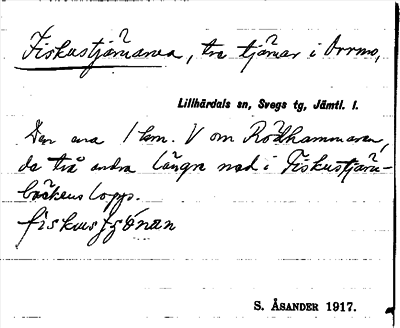 Fiskustjärnarna, tre tjärnar i Orrmo,
Lillhärdals sn, Svegs tg, Jämtl. l.
Den ena 1 km. V om Rödhammaren,
de två andra längre ned i Fiskustjärn-
bäckens lopp.
fiskustjǿnan
S. ÅSANDER 1917.